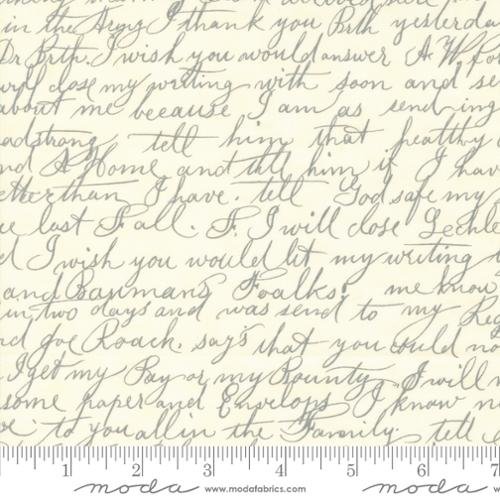 in the Army I thank you Brth yesterda
Dr Brth. I wish you would answer A. W. Fo
will close my writing with soon and se
about me because I am as send-ing
adstrong tell him that healthy
nd A Home and till him if I hav
etter than I have. tell God safe my
ce last Fall. F. I will close Lechle
d I wish you would let my writing
and Baumans Foalks, me know
in, two days and was send to my Reg
nd Joe Roach. says that you could no
I get my Pay or my Bounty I will
some paper and Envelops I know n
ve to you all in the Familly tell
1 2 3 4 5 6 7
moda www.modafabrics.com moda